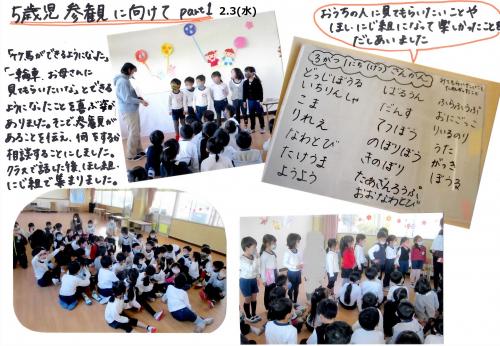 5歳児 参観に向けて part1 2.3(水)
「竹馬ができるようになった」
「一輪車、お母さんに
見てもらいたいな」とできる
ようになったことを喜ぶ姿が
ありました。そこで参観が
あることを伝え、何をするか
相談することにしました。
クラスで話した後、ほし組・
にじ組で集まりました。
おうちの人に見てもらいたいことや
ほし・にじ組になって楽しかったことを
だしあいました
3がつ1にち(げつ)さんかん
どっじぼうる
いちりんしゃ
こま
りれえ
なわとび
たけうま
ようよう
ばるうん
だんす
てつぼう
のぼりぼう
きのぼり
たあざんろうぷ
おおなわとび
ふらふうぷ
おにごっこ
いろのり
うた
がっき
ぼうる